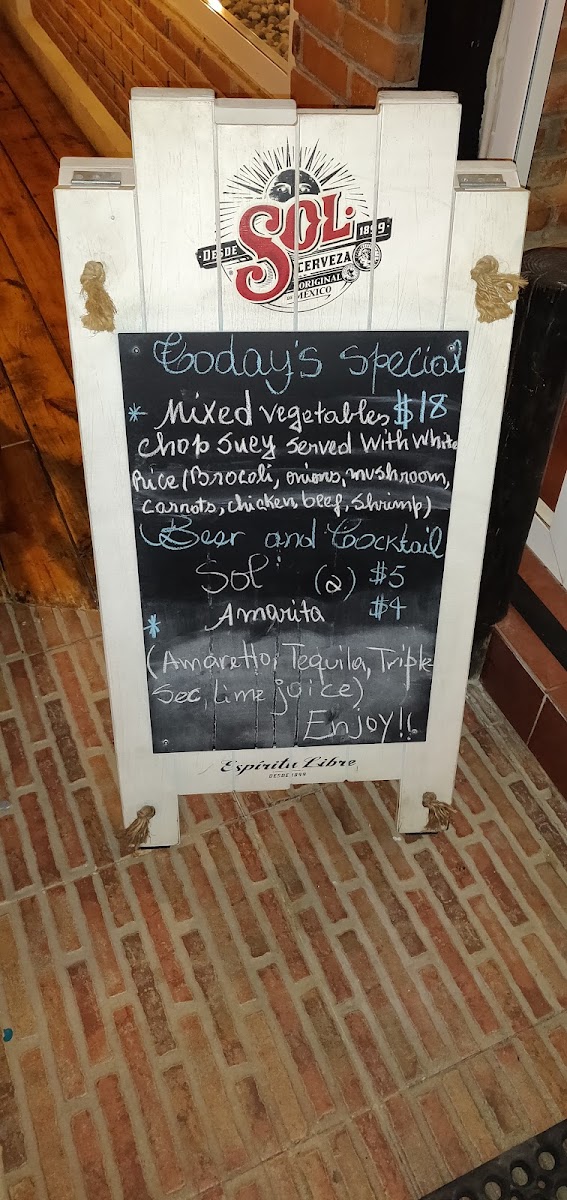 SOL
DESDE 1899
CERVEZA
ORIGINAL
DE MÉXICO
Today's special
* Mixed vegetables $18
chop suey served with white
Rice (Brocoli, onions, mushroom,
carrots, chicken, beef, shrimp)
Beer and Cocktail
Sol (2) $5
* Amarita $4
(Amaretto, Tequila, Triple
Sec, lime juice)
Enjoy!!
Espíritu Libre
DESDE 1899